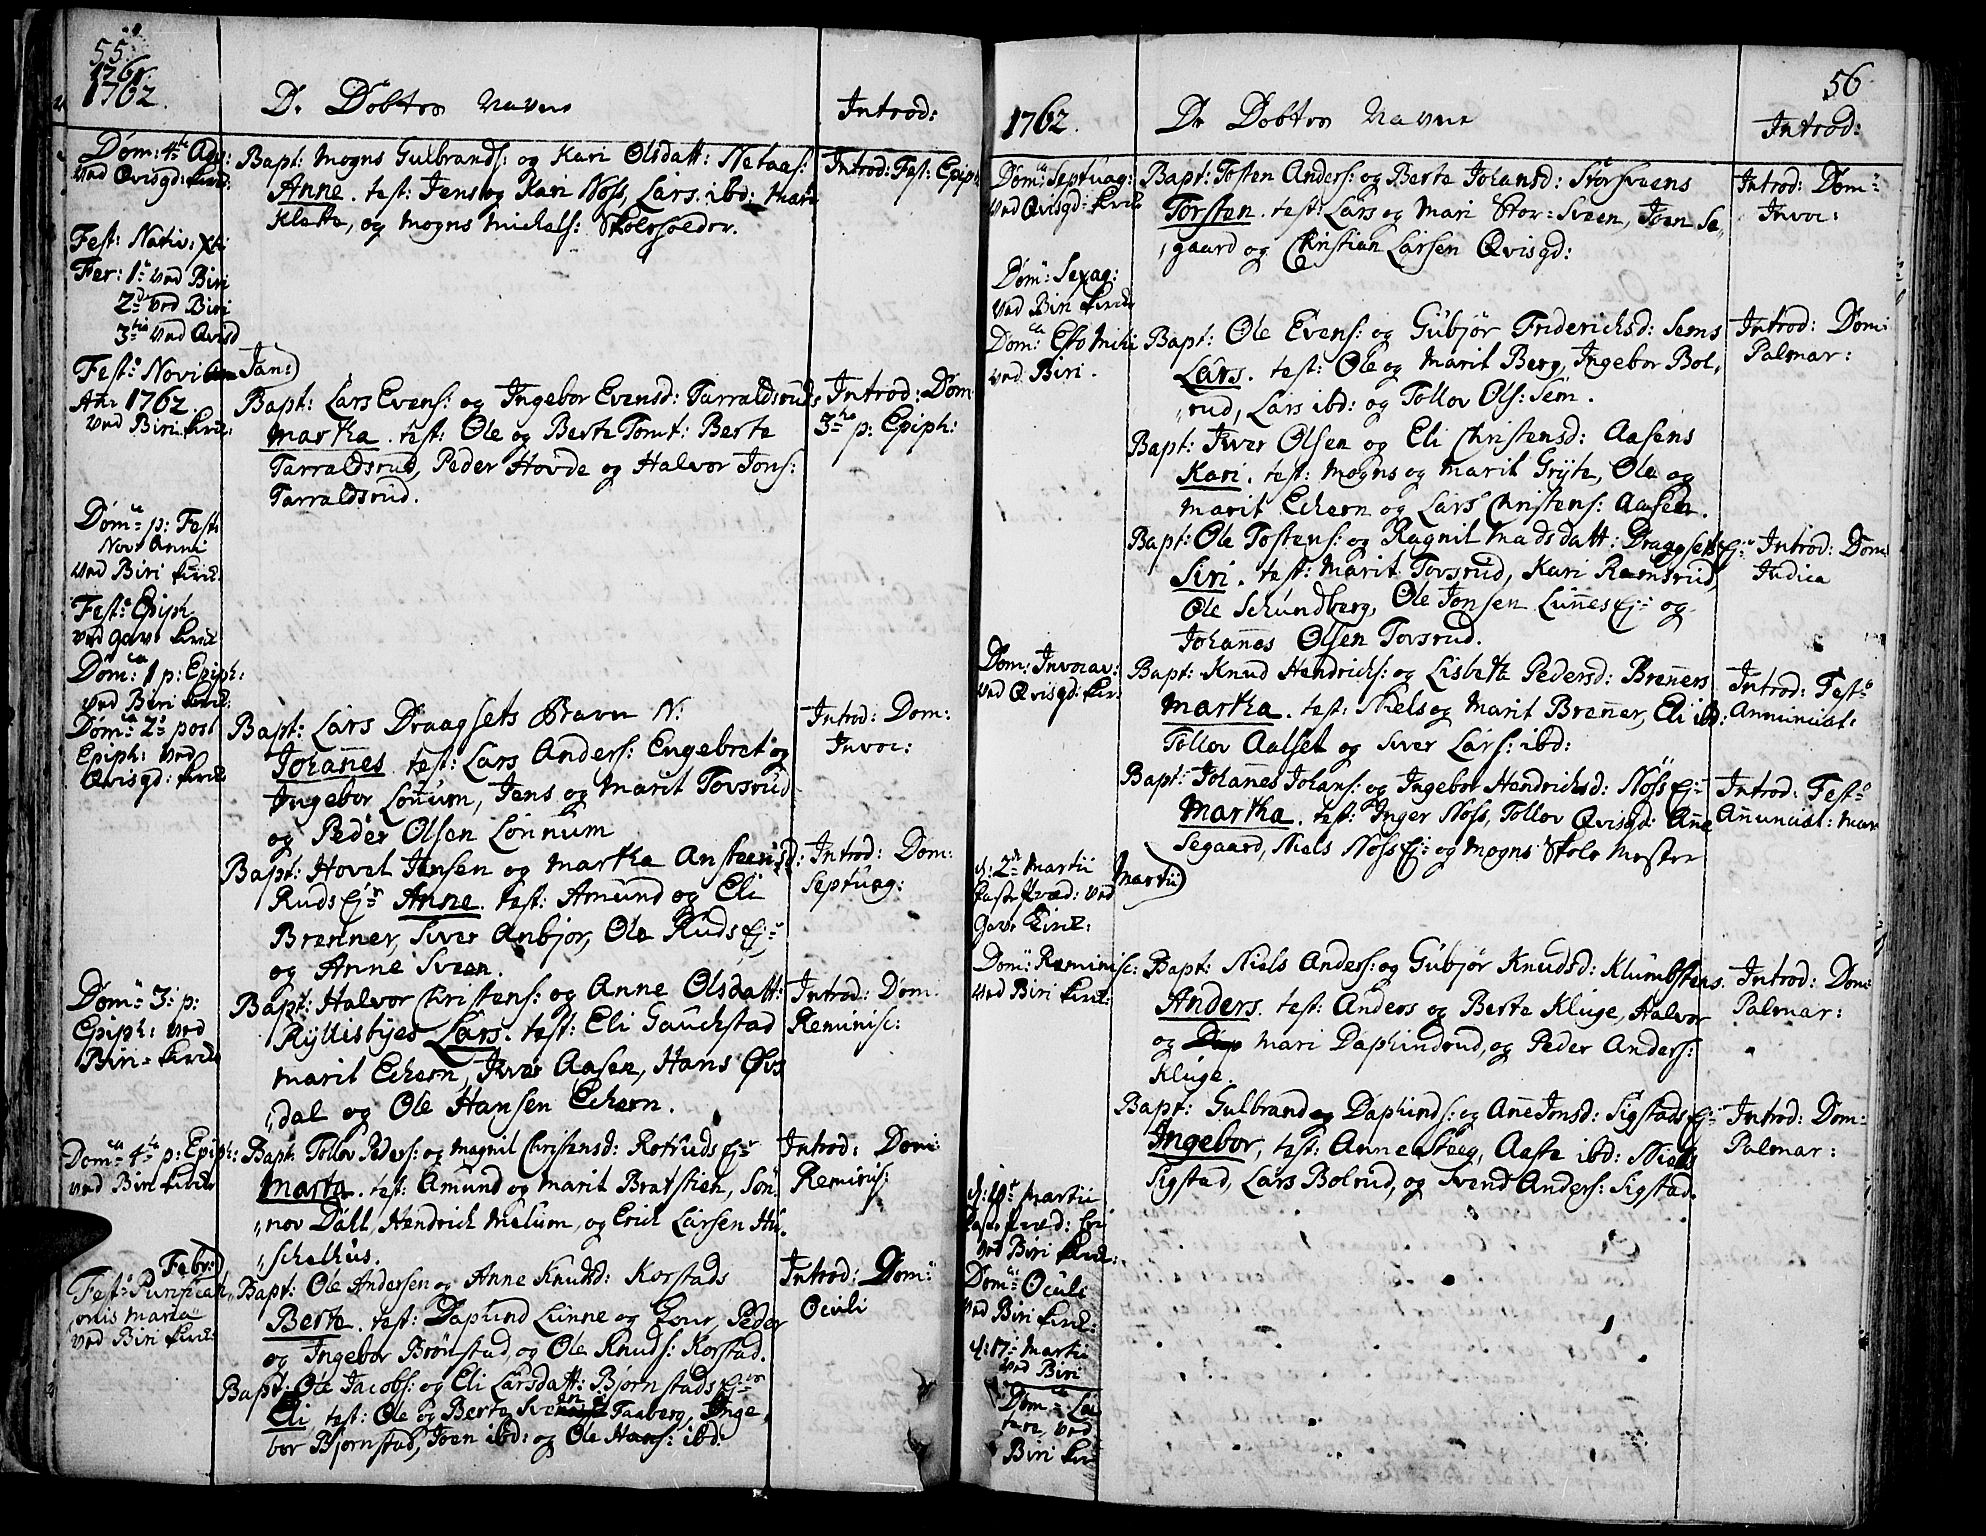 55.
1761.
1762.
De Døbtes Navne
Introd:
Dom: 4te Adv:
ved Qvisgd: kirke:
Bapt: Mogns Gulbrands: og Kari Olsdatt: Netaas:
Anne. test: Jens og Kari Nøss, Lars ibd: Mari
Klette, og Mogns Michels: Skoleholder.
Introd: Fest: Epiph:
Fest: Nativ: Xti
Fer: 1a ved Biri
2da ved Biri
3tia ved Qvisd
Festo Novi
Jan:
Ao 1762.
ved Biri kirk:
Bapt: Lars Evens: og Ingebor Evensd: Tarraldsruds
Martha. test: Ole og Berte Tomt: Berte
Tarraldsrud, Peder Hovde og Halvor Jons:
Tarraldsrud.
Introd: Dom
3tia p: Epiph:
Domca p: Fest:
Novi Anni
ved Biri kirk:
Festo Epiph
ved Gavs kirk:
Domca 1 p: Epiph:
ved Biri kirk:
Domca 2a post
Epiph: ved
Qvisgd: kirk:
Bapt: Lars Draagsets Bravn N:
Johannes. test: Lars Anders: Engebret og
Ingebor Lonnum, Jens og Marit Tovsrud
og Peder Olsen Lonnum
Introd: Dom:
Invoc:
Bapt: Hovel Jensen og Martha Ansteensd:
Ruds Ejr Anne. test: Amund og Eli
Brenner, Siver Anbjor, Ole Ruds Ej:
og Anne Sveen.
Introd: Dom:
Septuag:
Domca 3: p:
Epiph: ved
Biri kirke
Bapt: Halvor Christens: og Anne Olsdatt:
Ryllisbyes Lars. test: Eli Gauckstad
Marit Echern, Iver Aasen, Hans Øvs
dal og Ole Hansen Echern.
Introd: Dom.
Reminisc:
Domca 4ta p: Epiph:
ved Biri kirke
Bapt: Tollov Peders: og Magnil Christensd: Rotruds Ejr
Marte. test: Amund og Marit Bratstien, Søn
nov Dall, Hendrich Melum, og Erich Larsen Hu,
schelhus.
Introd: Dom:
Reminis:
Febr:
Festo Purificati
onis Maria
ved Biri kirk:
Bapt: Ole Andersen og Anne Knudsd: Korstads
Berte. test: Daphund Lunne og Cone, Peder
og Ingebor Brønstad, og Ole Knuds: Korstad.
Introd: Dom:
Oculi
Bapt: Ole Jacobs: og Eli Larsdatt: Bjørnstads Ejer
Eli test: Ole og Berte Sven Taaberg, Inge,
bor Bjørnstad, Joen ibd: og Ole Hans: ibd:
56
1762.
De Døbtes Navne
Introd:
Domca Septuag:
ved Qvisgd: kirk:
Bapt: Tosten Anders: og Berte Johansd: Storsveens
Torsten. test: Lars og Mari Stor: Sveen, Joen Se,
gaard og Christian Larsen Qvisgd:
Introd: Dom:
Invoc:
Dom: Sexag:
ved Biri kirke
Domca Esto Mihi
ved Biri.
Bapt: Ole Evens: og Gubjør Friderichsd: Sems
Lars. test: Ole og Marit Berg, Ingebor Bol,
rud, Lars ibd: og Tollov Ols: Sem.
Introd: Dom:
Palmar:
Bapt: Iver Olsen og Eli Christensd: Aasens
Kari. test: Mogns og Marit Gryte, Ole og
Marit Echern og Lars Christens: Aasen.
Bapt: Ole Tostens: og Ragnil Madsdatt: Draagsets Ej:
Siri. test: Marit Tovsrud, Kari Ramsrud,
Ole Schundberg, Ole Jonsen Lunnes Ej: og
Johannes Olsen Tovsrud.
Introd: Dom:
Judica
Dom: Invocav:
ved Qvisgd: kir:
Bapt: Knud Hendrichs: og Lisbeth Pedersd: Brenners
Martha. test: Niels og Marit Brenner, Eli ibd:
Tollov Aalset og Siver Lars: ibd:
Introd: Festo
Annunciat:
Bapt: Johannes Johans: og Ingebor Hendrichsd: Nøss Ej:
Martha. test: Inger Nøss, Tollov Qvisgd: Anne
Segaard, Niels Nøss Ej: og Mogns Skole Mester
Introd: Festo
Annunciat: Mar
d: 2n Martii
Faste Præd: ved
Gavs kirk:
Martii
Domca Reminisc:
ved Biri kirk:
Bapt: Niels Anders: og Gubjør Knudsd: Klumbstens
Anders. test: Anders og Berte Kluge, Halvor
og Mari Daphindrud, og Peder Anders:
Kluge.
Introd: Dom:
Palmar:
Bapt: Gulbrand Daphinds: og Anne Jonsd: Sigstads Ej:
Ingebor, test: Anne Steeg, Aaste ibd: Niels
Sigstad, Lars Bolrud, og Svend Anders: Sigstad.
Introd: Dom:
Palmar:
d: 10e Martii
Faste Præd:
ved Biri kirk:
Domca Oculi
ved Biri kirk:
d: 17: Martii
ved Biri
Domca Læ
tare, ved
Biri kir: